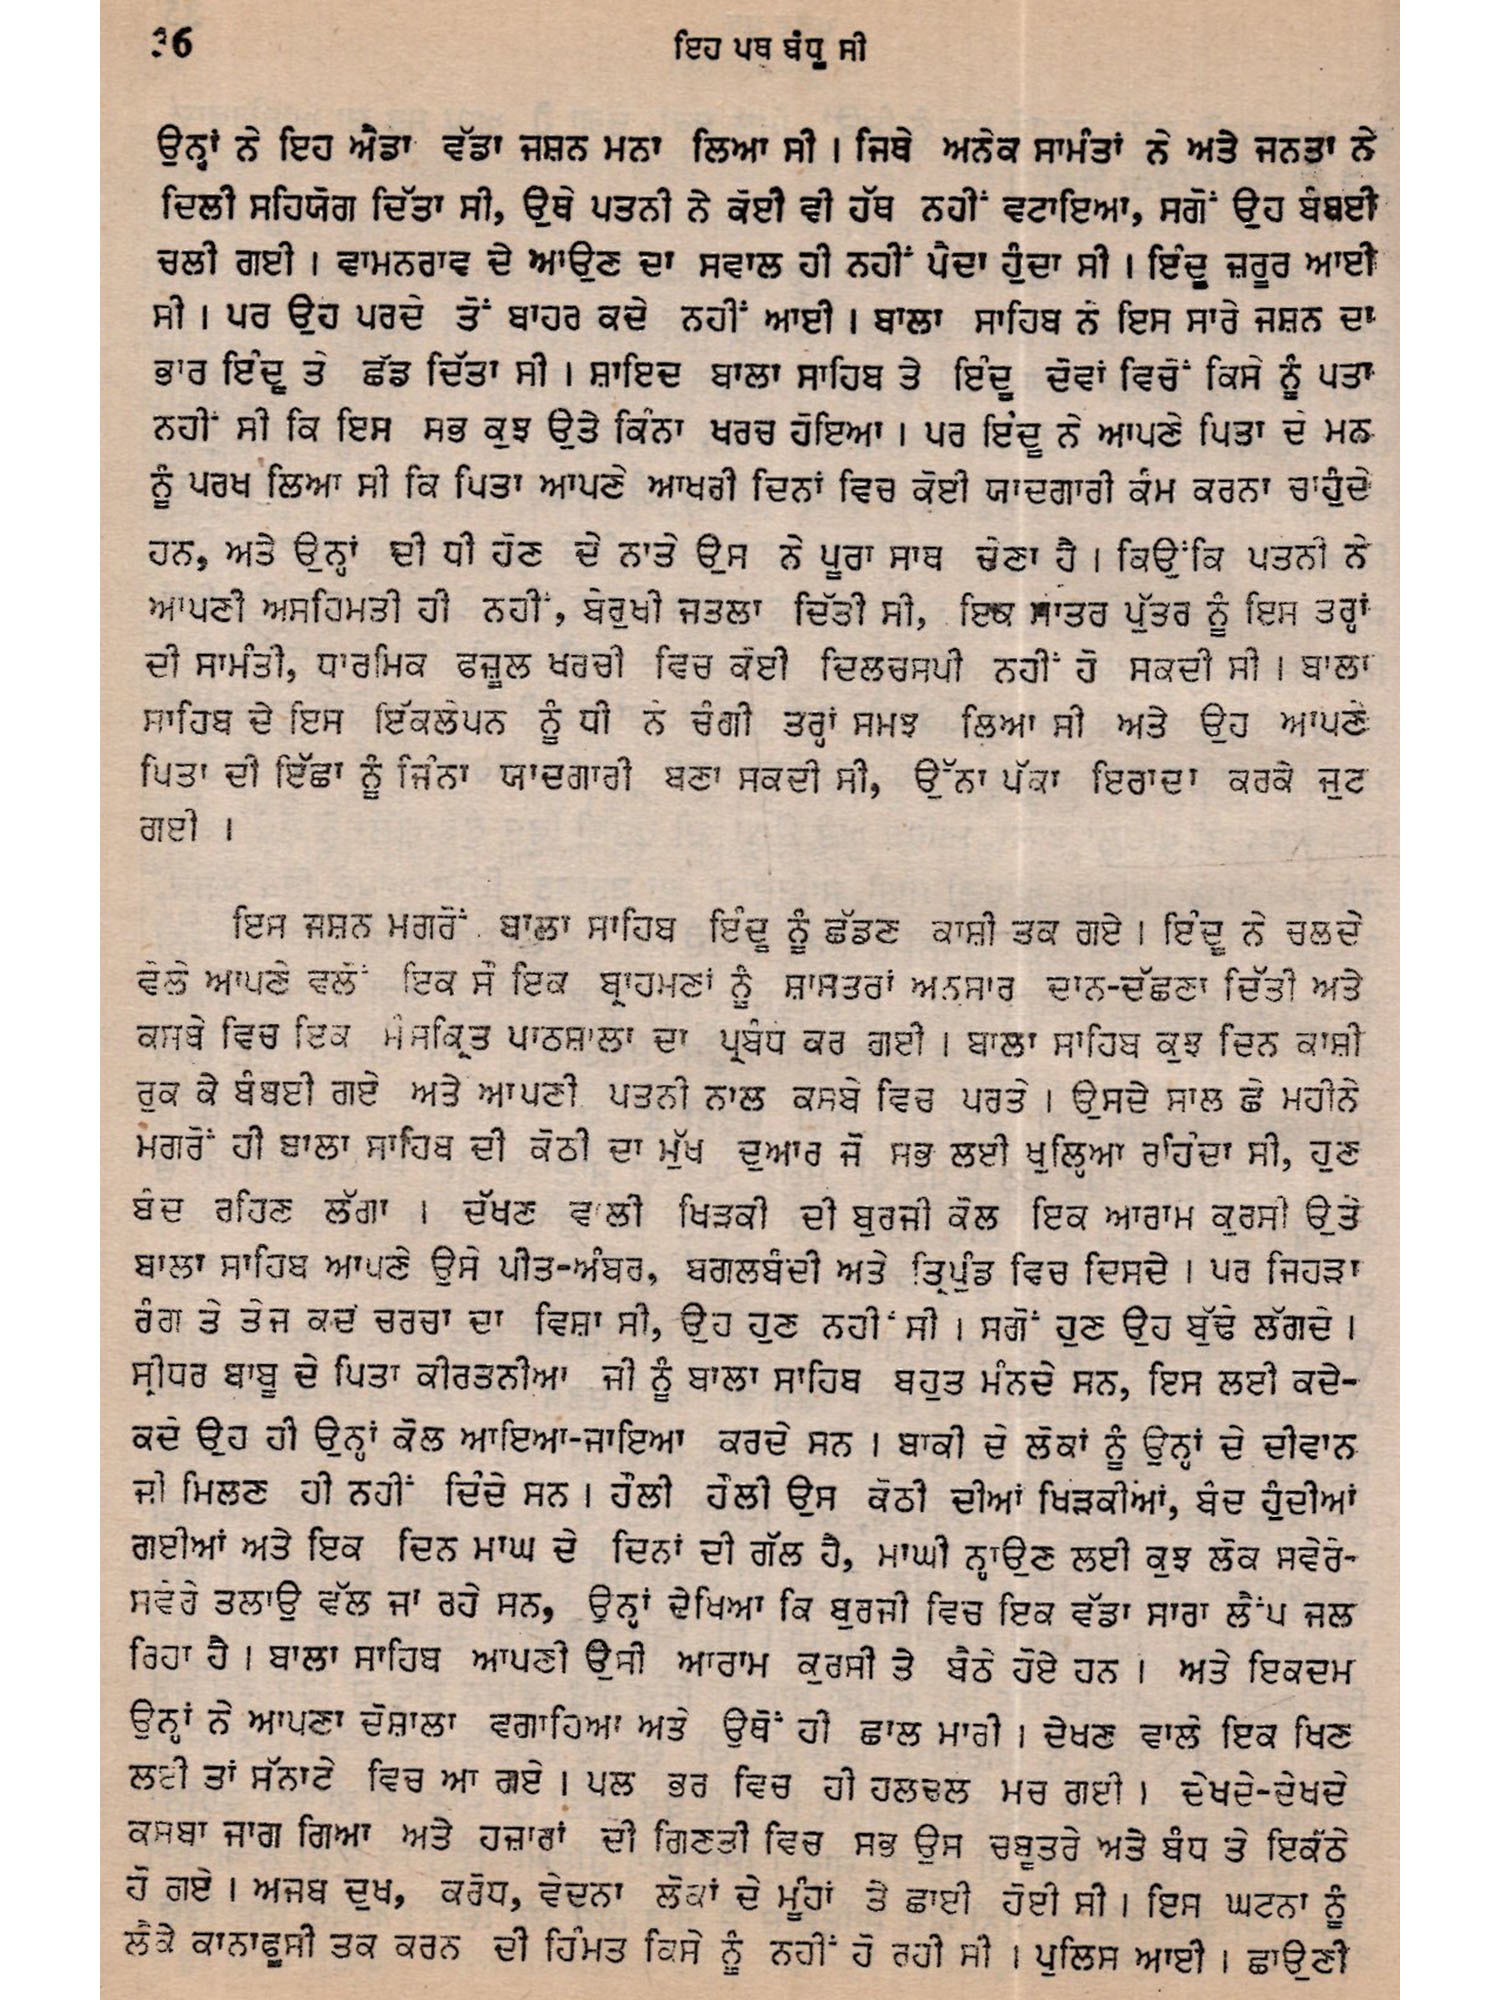 36
ਇਹ ਪਥ ਬੰਧੂ ਸੀ
ਉਨ੍ਹਾਂ ਨੇ ਇਹ ਐਡਾ ਵੱਡਾ ਜਸ਼ਨ ਮਨਾ ਲਿਆ ਸੀ। ਜਿਥੇ ਅਨੇਕ ਸਾਮੰਤਾਂ ਨੇ ਅਤੇ ਜਨਤਾ ਨੇ
ਦਿਲੀ ਸਹਿਯੋਗ ਦਿੱਤਾ ਸੀ, ਉਥੇ ਪਤਨੀ ਨੇ ਕੋਈ ਵੀ ਹੱਥ ਨਹੀਂ ਵਟਾਇਆ, ਸਗੋਂ ਉਹ ਬੰਬਈ
ਚਲੀ ਗਈ। ਵਾਮਨਰਾਵ ਦੇ ਆਉਣ ਦਾ ਸਵਾਲ ਹੀ ਨਹੀਂ ਪੈਦਾ ਹੁੰਦਾ ਸੀ। ਇੰਦੂ ਜ਼ਰੂਰ ਆਈ
ਸੀ। ਪਰ ਉਹ ਪਰਦੇ ਤੋਂ ਬਾਹਰ ਕਦੇ ਨਹੀਂ ਆਈ। ਬਾਲਾ ਸਾਹਿਬ ਨੇ ਇਸ ਸਾਰੇ ਜਸ਼ਨ ਦਾ
ਭਾਰ ਇੰਦੂ ਤੇ ਛੱਡ ਦਿੱਤਾ ਸੀ। ਸ਼ਾਇਦ ਬਾਲਾ ਸਾਹਿਬ ਤੇ ਇੰਦੂ ਦੋਵਾਂ ਵਿਚੋਂ ਕਿਸੇ ਨੂੰ ਪਤਾ
ਨਹੀਂ ਸੀ ਕਿ ਇਸ ਸਭ ਕੁਝ ਉਤੇ ਕਿੰਨਾ ਖਰਚ ਹੋਇਆ। ਪਰ ਇੰਦੂ ਨੇ ਆਪਣੇ ਪਿਤਾ ਦੇ ਮਨ
ਨੂੰ ਪਰਖ ਲਿਆ ਸੀ ਕਿ ਪਿਤਾ ਆਪਣੇ ਆਖਰੀ ਦਿਨਾਂ ਵਿਚ ਕੋਈ ਯਾਦਗਾਰੀ ਕੰਮ ਕਰਨਾ ਚਾਹੁੰਦੇ
ਹਨ, ਅਤੇ ਉਨ੍ਹਾਂ ਦੀ ਧੀ ਹੋਣ ਦੇ ਨਾਤੇ ਉਸ ਨੇ ਪੂਰਾ ਸਾਥ ਦੇਣਾ ਹੈ। ਕਿਉਂਕਿ ਪਤਨੀ ਨੇ
ਆਪਣੀ ਅਸਹਿਮਤੀ ਹੀ ਨਹੀਂ, ਬੇਰੁਖੀ ਜਤਲਾ ਦਿੱਤੀ ਸੀ, ਇਕ ਮਾਤਰ ਪੁੱਤਰ ਨੂੰ ਇਸ ਤਰ੍ਹਾਂ
ਦੀ ਸਾਮੰਤੀ, ਧਾਰਮਿਕ ਫਜ਼ੂਲ ਖਰਚੀ ਵਿਚ ਕੋਈ ਦਿਲਚਸਪੀ ਨਹੀਂ ਹੋ ਸਕਦੀ ਸੀ। ਬਾਲਾ
ਸਾਹਿਬ ਦੇ ਇਸ ਇੱਕਲੇਪਨ ਨੂੰ ਧੀ ਨੇ ਚੰਗੀ ਤਰ੍ਹਾਂ ਸਮਝ ਲਿਆ ਸੀ ਅਤੇ ਉਹ ਆਪਣੇ
ਪਿਤਾ ਦੀ ਇੱਛਾ ਨੂੰ ਜਿੰਨਾ ਯਾਦਗਾਰੀ ਬਣਾ ਸਕਦੀ ਸੀ, ਉੱਨਾ ਪੱਕਾ ਇਰਾਦਾ ਕਰਕੇ ਜੁਟ
ਗਈ।
ਇਸ ਜਸ਼ਨ ਮਗਰੋਂ ਬਾਲਾ ਸਾਹਿਬ ਇੰਦੂ ਨੂੰ ਛੱਡਣ ਕਾਸ਼ੀ ਤਕ ਗਏ। ਇੰਦੂ ਨੇ ਚਲਦੇ
ਵੇਲੇ ਆਪਣੇ ਵਲੋਂ ਇਕ ਸੌ ਇਕ ਬ੍ਰਾਹਮਣਾਂ ਨੂੰ ਸ਼ਾਸਤਰਾਂ ਅਨੁਸਾਰ ਦਾਨ-ਦੱਛਣਾ ਦਿੱਤੀ ਅਤੇ
ਕਸਬੇ ਵਿਚ ਇਕ ਸੰਸਕ੍ਰਿਤ ਪਾਠਸ਼ਾਲਾ ਦਾ ਪ੍ਰਬੰਧ ਕਰ ਗਈ। ਬਾਲਾ ਸਾਹਿਬ ਕੁਝ ਦਿਨ ਕਾਸ਼ੀ
ਰੁਕ ਕੇ ਬੰਬਈ ਗਏ ਅਤੇ ਆਪਣੀ ਪਤਨੀ ਨਾਲ ਕਸਬੇ ਵਿਚ ਪਰਤੇ। ਉਸਦੇ ਸਾਲ ਛੇ ਮਹੀਨੇ
ਮਗਰੋਂ ਹੀ ਬਾਲਾ ਸਾਹਿਬ ਦੀ ਕੋਠੀ ਦਾ ਮੁੱਖ ਦੁਆਰ ਜੋ ਸਭ ਲਈ ਖੁਲ੍ਹਿਆ ਰਹਿੰਦਾ ਸੀ, ਹੁਣ
ਬੰਦ ਰਹਿਣ ਲੱਗਾ। ਦੱਖਣ ਵਾਲੀ ਖਿੜਕੀ ਦੀ ਬੁਰਜੀ ਕੋਲ ਇਕ ਆਰਾਮ ਕੁਰਸੀ ਉਤੇ
ਬਾਲਾ ਸਾਹਿਬ ਆਪਣੇ ਉਸੇ ਪੀਤ-ਅੰਬਰ, ਬਗਲਬੰਦੀ ਅਤੇ ਤ੍ਰਿਪੁੰਡ ਵਿਚ ਦਿਸਦੇ। ਪਰ ਜਿਹੜਾ
ਰੰਗ ਤੇ ਤੇਜ ਕਦੇ ਚਰਚਾ ਦਾ ਵਿਸ਼ਾ ਸੀ, ਉਹ ਹੁਣ ਨਹੀਂ ਸੀ। ਸਗੋਂ ਹੁਣ ਉਹ ਬੁੱਢੇ ਲੱਗਦੇ।
ਸ੍ਰੀਧਰ ਬਾਬੂ ਦੇ ਪਿਤਾ ਕੀਰਤਨੀਆ ਜੀ ਨੂੰ ਬਾਲਾ ਸਾਹਿਬ ਬਹੁਤ ਮੰਨਦੇ ਸਨ, ਇਸ ਲਈ ਕਦੇ-
ਕਦੇ ਉਹ ਹੀ ਉਨ੍ਹਾਂ ਕੋਲ ਆਇਆ-ਜਾਇਆ ਕਰਦੇ ਸਨ। ਬਾਕੀ ਦੇ ਲੋਕਾਂ ਨੂੰ ਉਨ੍ਹਾਂ ਦੇ ਦੀਵਾਨ
ਜੀ ਮਿਲਣ ਹੀ ਨਹੀਂ ਦਿੰਦੇ ਸਨ। ਹੌਲੀ ਹੌਲੀ ਉਸ ਕੋਠੀ ਦੀਆਂ ਖਿੜਕੀਆਂ, ਬੰਦ ਹੁੰਦੀਆਂ
ਗਈਆਂ ਅਤੇ ਇਕ ਦਿਨ ਮਾਘ ਦੇ ਦਿਨਾਂ ਦੀ ਗੱਲ ਹੈ, ਮਾਘੀ ਨ੍ਹਾਉਣ ਲਈ ਕੁਝ ਲੋਕ ਸਵੇਰੇ-
ਸਵੇਰੇ ਤਲਾਉ ਵੱਲ ਜਾ ਰਹੇ ਸਨ, ਉਨ੍ਹਾਂ ਦੇਖਿਆ ਕਿ ਬੁਰਜੀ ਵਿਚ ਇਕ ਵੱਡਾ ਸਾਰਾ ਲੈਂਪ ਜਲ
ਰਿਹਾ ਹੈ। ਬਾਲਾ ਸਾਹਿਬ ਆਪਣੀ ਉਸੀ ਆਰਾਮ ਕੁਰਸੀ ਤੇ ਬੈਠੇ ਹੋਏ ਹਨ। ਅਤੇ ਇਕਦਮ
ਉਨ੍ਹਾਂ ਨੇ ਆਪਣਾ ਦੋਸ਼ਾਲਾ ਵਗਾਹਿਆ ਅਤੇ ਉਥੋਂ ਹੀ ਛਾਲ ਮਾਰੀ। ਦੇਖਣ ਵਾਲੇ ਇਕ ਖਿਣ
ਲਈ ਤਾਂ ਸੱਨਾਟੇ ਵਿਚ ਆ ਗਏ। ਪਲ ਭਰ ਵਿਚ ਹੀ ਹਲਚਲ ਮਚ ਗਈ। ਦੇਖਦੇ-ਦੇਖਦੇ
ਕਸਬਾ ਜਾਗ ਗਿਆ ਅਤੇ ਹਜ਼ਾਰਾਂ ਦੀ ਗਿਣਤੀ ਵਿਚ ਸਭ ਉਸ ਚਬੂਤਰੇ ਅਤੇ ਬੰਧ ਤੇ ਇਕੱਠੇ
ਹੋ ਗਏ। ਅਜਬ ਦੁਖ, ਕਰੋਧ, ਵੇਦਨਾ ਲੋਕਾਂ ਦੇ ਮੂੰਹਾਂ ਤੇ ਛਾਈ ਹੋਈ ਸੀ। ਇਸ ਘਟਨਾ ਨੂੰ
ਲੈਕੇ ਕਾਨਾਫੂਸੀ ਤਕ ਕਰਨ ਦੀ ਹਿੰਮਤ ਕਿਸੇ ਨੂੰ ਨਹੀਂ ਹੋ ਰਹੀ ਸੀ। ਪੁਲਿਸ ਆਈ। ਛਾਉਣੀ